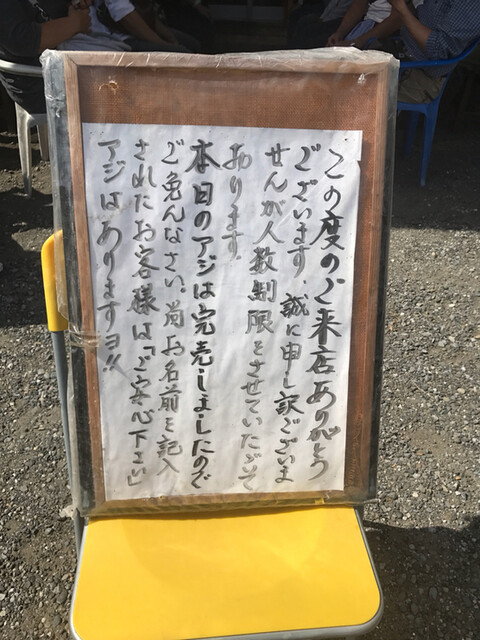 この度のご来店ありがとう
ございます、誠に申し訳ございま
せんが人数制限をさせていただいて
おります。
本日のアジは完売しましたので
ご免んなさい。尚お名前を記入
されたお客様は「ご安心下さい」
アジはありますヨ!!